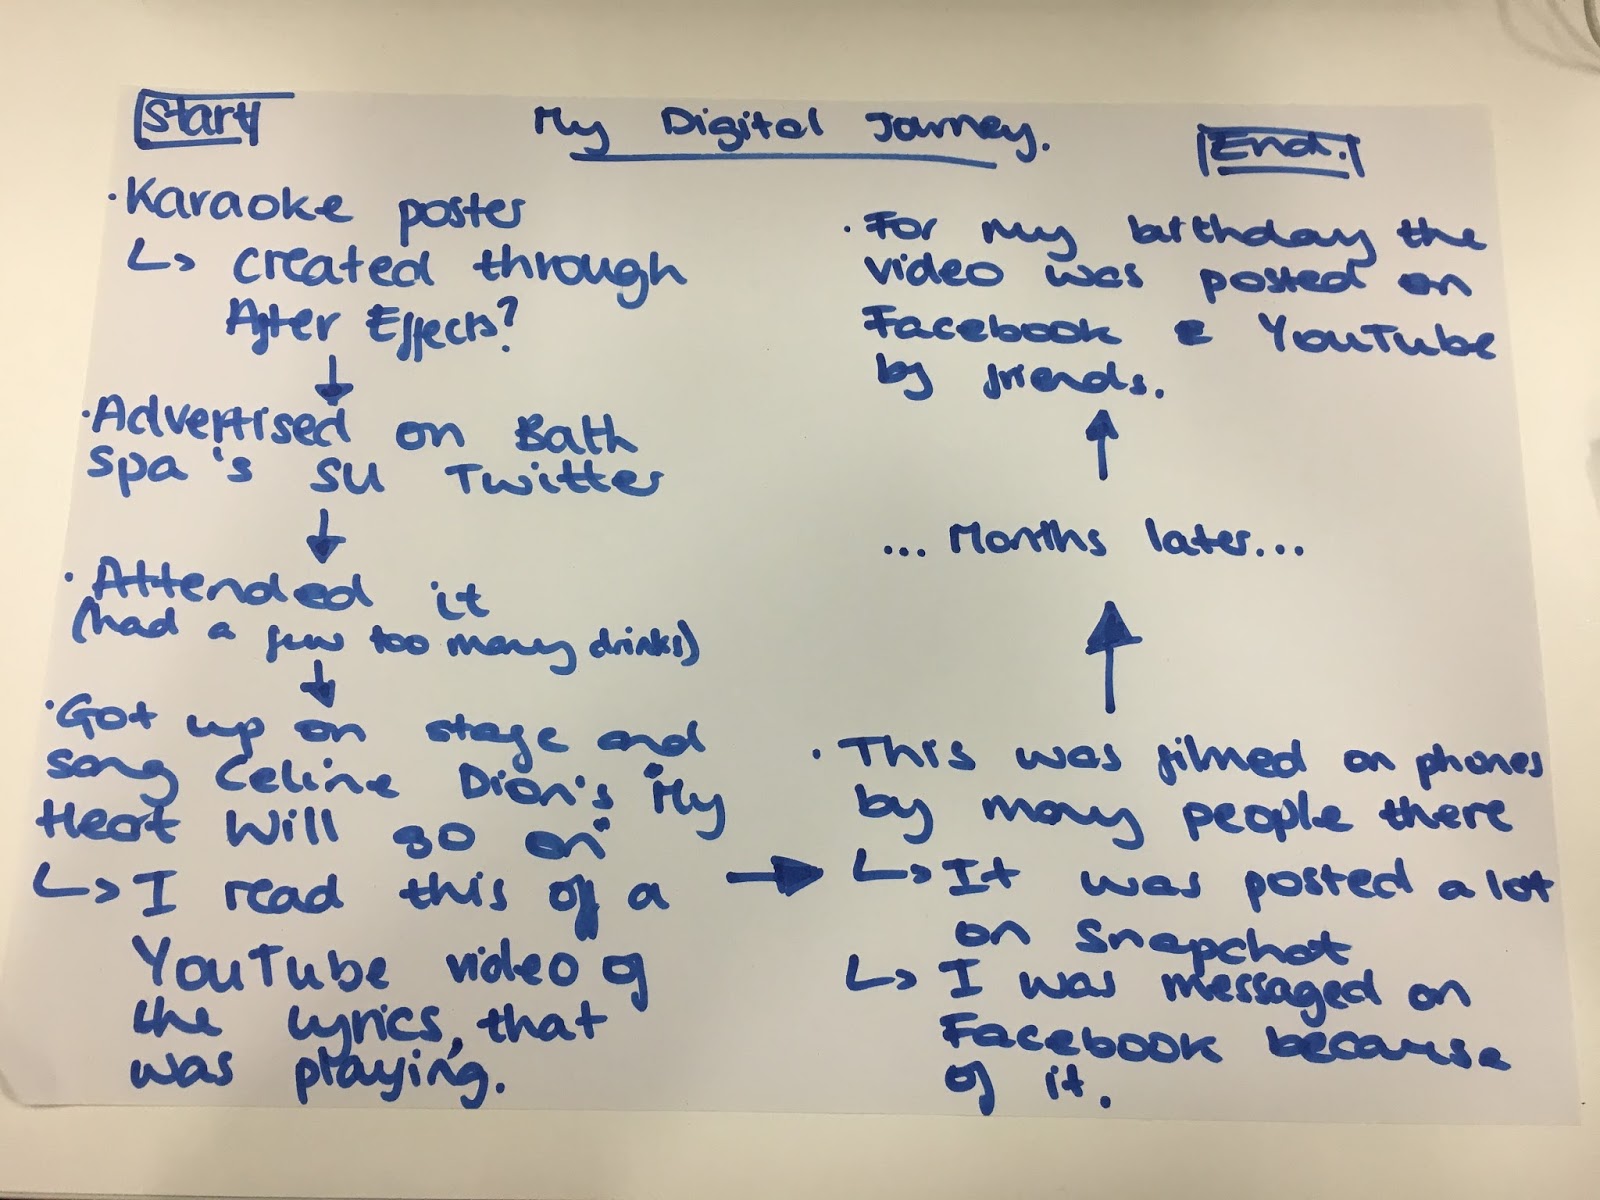 Start
My Digital Journey.
End.
· Karaoke poster
↳ created through
After Effects?
· Advertised on Bath
Spa's SU Twitter
· Attended it
(had a few too many drinks)
· Got up on stage and
sang Celine Dion's "My
Heart Will go on"
↳ I read this of a
YouTube video of
the lyrics, that
was playing.
· This was filmed on phones
by many people there
↳ It was posted a lot
on Snapchat
↳ I was messaged on
Facebook because
of it.
... Months later...
· For my birthday the
video was posted on
Facebook & YouTube
by friends.